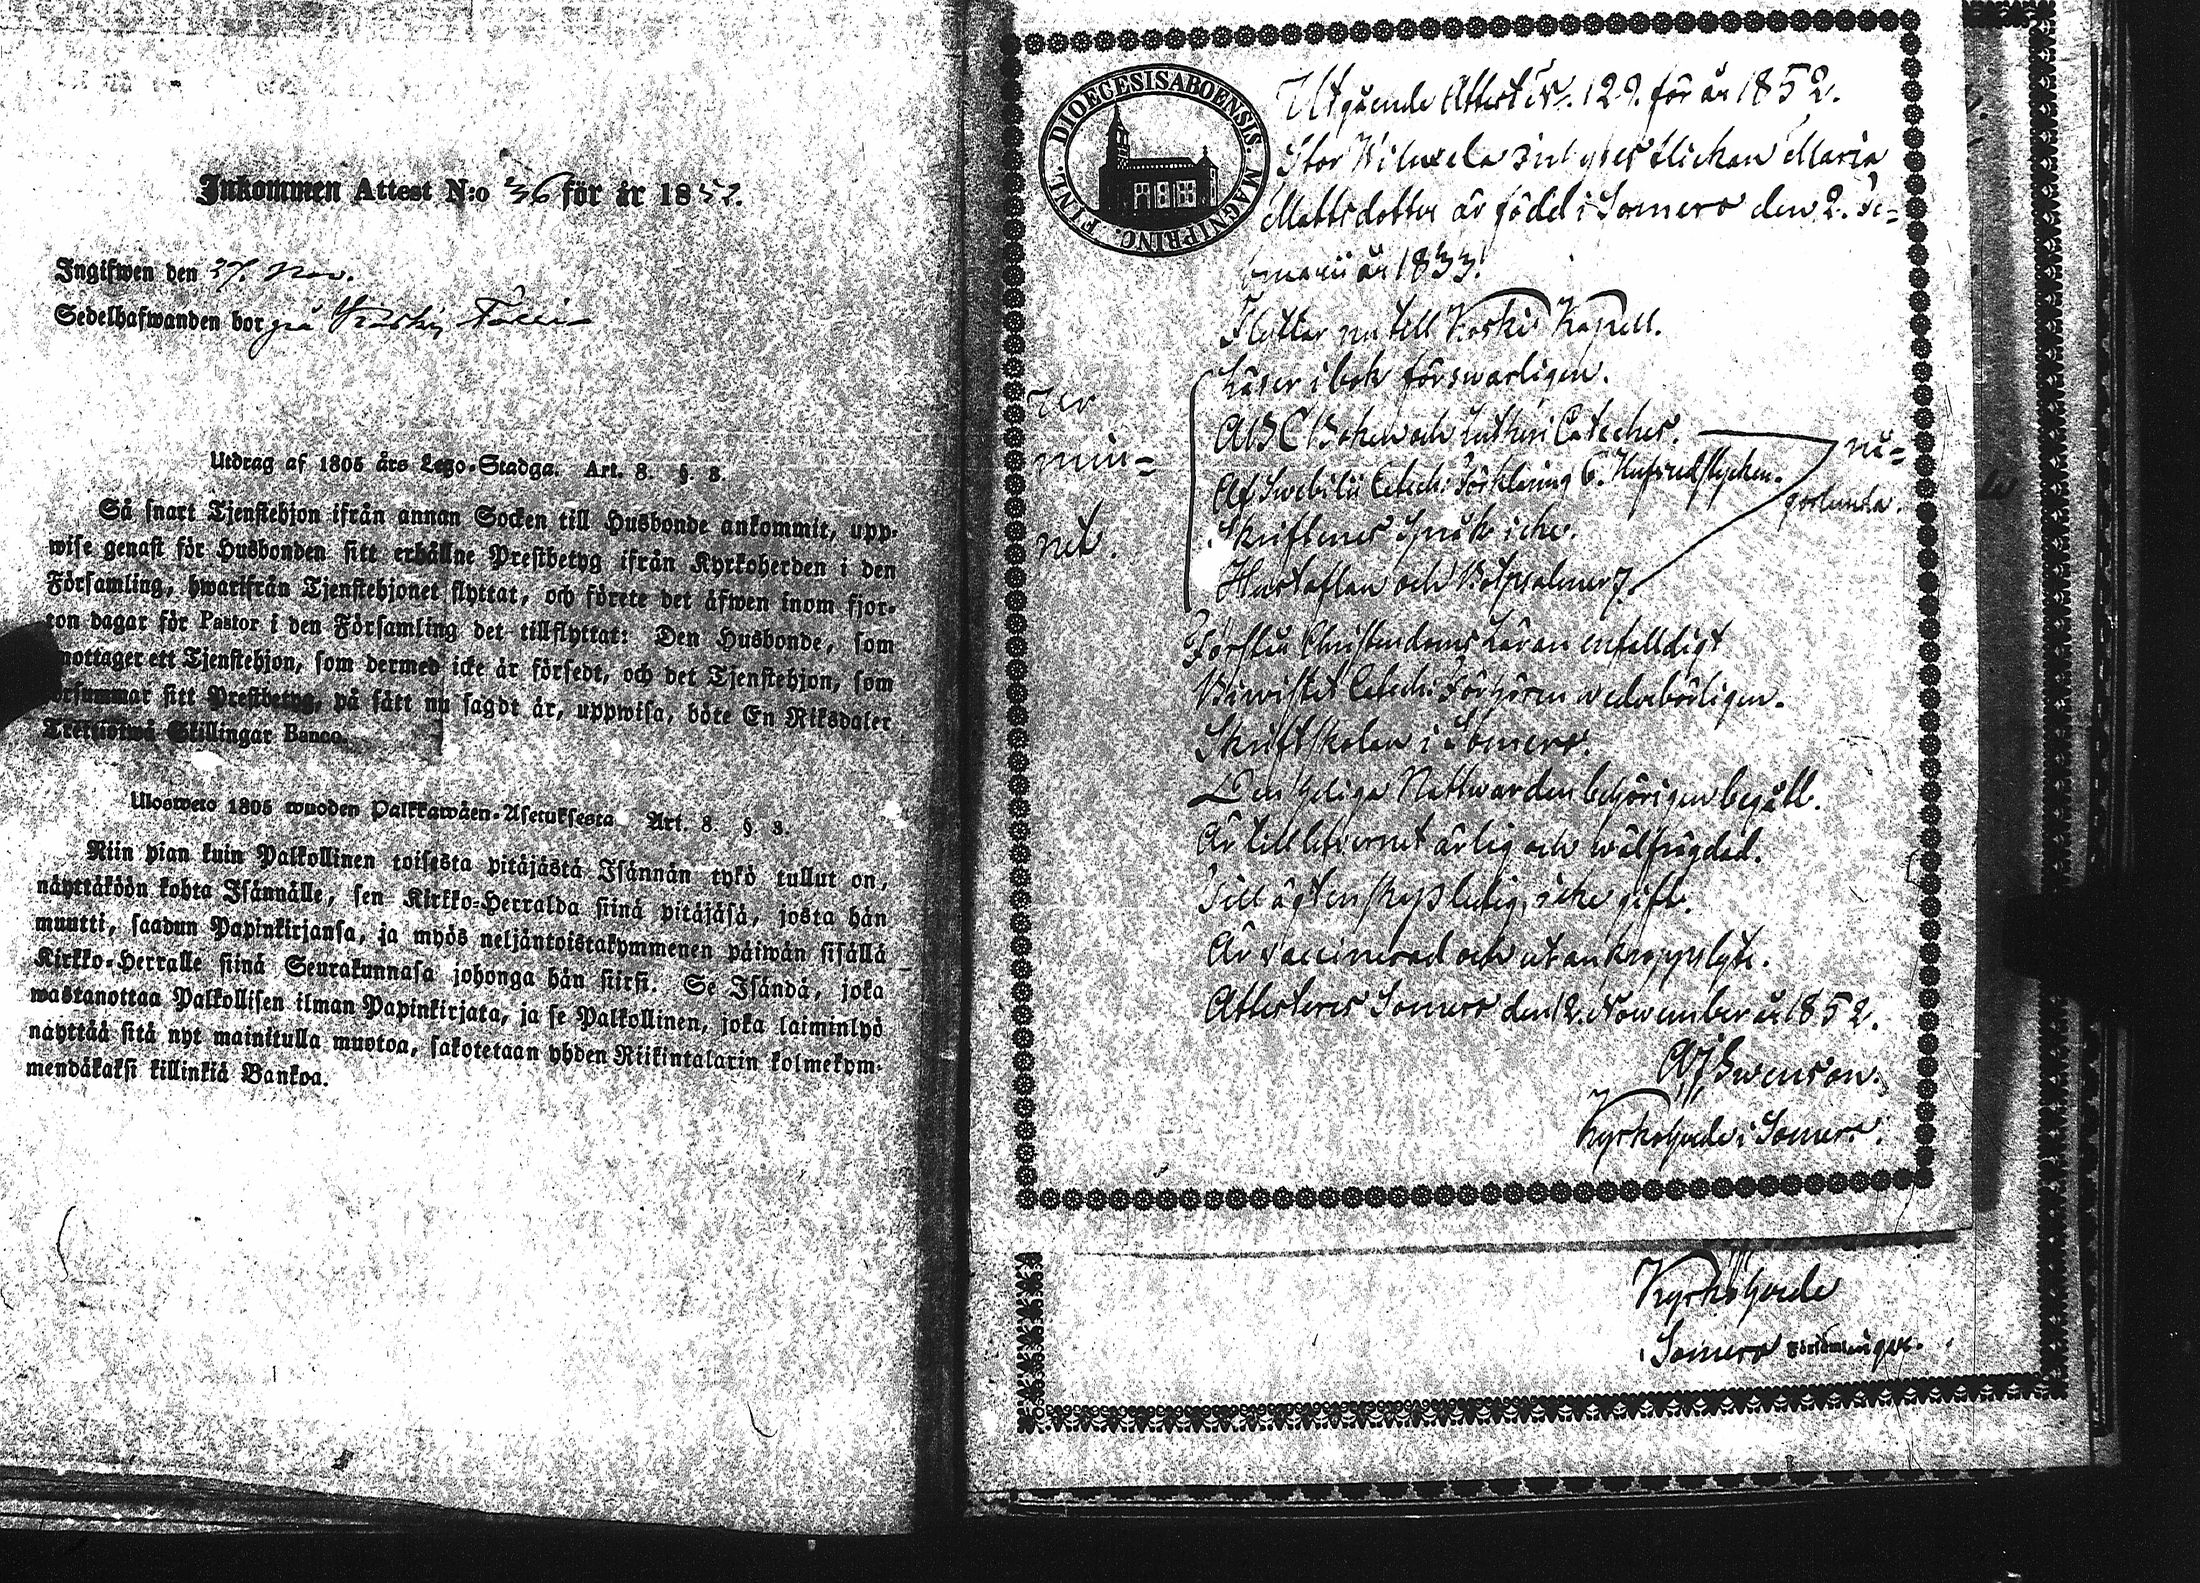 Inkommen Attest N:o 36 för år 1852.
Ingifwen den 27. Nov.
Sedelhafwanden bor på Koski
Utdrag af 1805 års Lego-Stadga. Art. 8. §. 3.
Så snart Tjenstehjon ifrån annan Socken till Husbonde ankommit, upp-
wise genast för Husbonden sitt erhållne Prestbetyg ifrån Kyrkoherden i den
Församling, hwarifrån Tjenstehjonet flyttat, och förete det äfwen inom fjor-
ton dagar för Pastor i den Församling det tillflyttat: Den Husbonde, som
mottager ett Tjenstehjon, som dermed icke är försedt, och det Tjenstehjon, som
försummar sitt Prestbetyg, på sätt nu sagdt är, uppwisa, böte En Riksdaler
Trettiotwå Skillingar Banco.
Ulosweto 1805 wuoden Palkkawäen-Asetuksesta Art. 8. §. 3.
Niin pian kuin Palkollinen toisesta pitäjästä Isännän tykö tullut on,
näyttäköön kohta Isännälle, sen Kirkko-Herralda siinä pitäjäsä, josta hän
muutti, saadun Papinkirjansa, ja myös neljäntoistakymmenen päiwän sisällä
Kirkko-Herralle siinä Seurakunnasa johonga hän siirsi. Se Isändä, joka
wastanottaa Palkollisen ilman Papinkirjata, ja se Palkollinen, joka laiminlyö
näyttää sitä nyt mainitulla muotoa, sakotetaan yhden Riikintalarin kolmekym-
mendäkaksi killinkiä Bankoa.
DIOECESIS ABOENSIS. MAGNI PRINC. FINL.
Utgående Attest N. 129. för år 1852.
Stor Wilusela flickan Maria
Mattsdotter är född i Somero den 2. Fe=
bruarii år 1833.
Flyttar nu till Koskis Kapell.
Läser i bok förswarligen.
ABC Boken och Lutheri Cateches.
Af Swebilii Catech: Förklaring 6. Hufvudstycken.
Skriftenes Språk icke.
Hustaflan och Botpsalmer 7.
Ur
min=
net.
nå=
gorlunda.
Förstår Christendoms Läran enfalldigt
Biwistet Catech: Förhören wederbörligen.
Skriftskolan i Somero.
Den heliga Nattwarden behörigen begått.
Är till lefvernet ärlig och wälfrägdad.
Till ägtenskap ledig, icke gift.
Är vaccinerad och utan kroppslyte.
Attesteres Somero den 12. November år 1852.
Swenson.
Kyrkoherde i Somero.
Kyrkoherde
i Somero Församlingar.